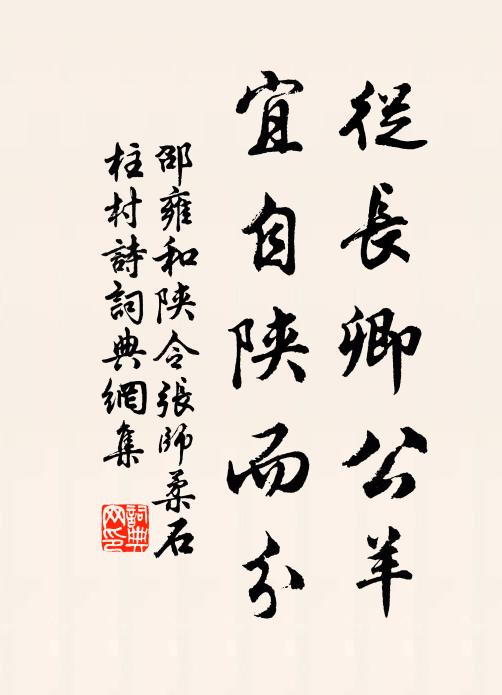 從長卿公羊
宜自陝而分
邵雍和陝令張師柔石
柱村詩詞典網集
詞典
网印